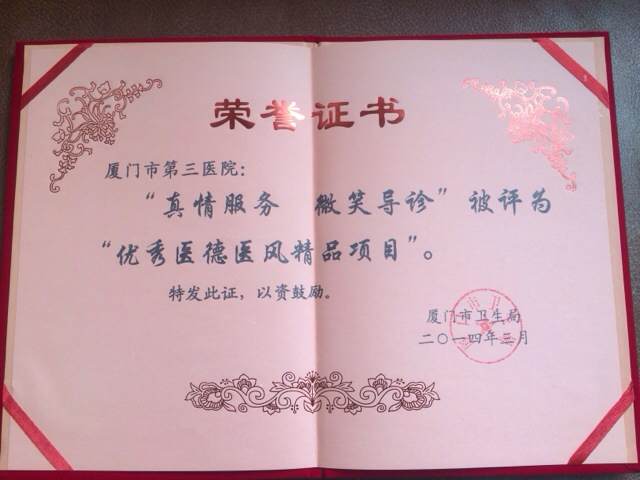 荣誉证书
厦门市第三医院：
“真情服务 微笑导诊”被评为
“优秀医德医风精品项目”。
特发此证，以资鼓励。
厦门市卫生局
二〇一四年三月